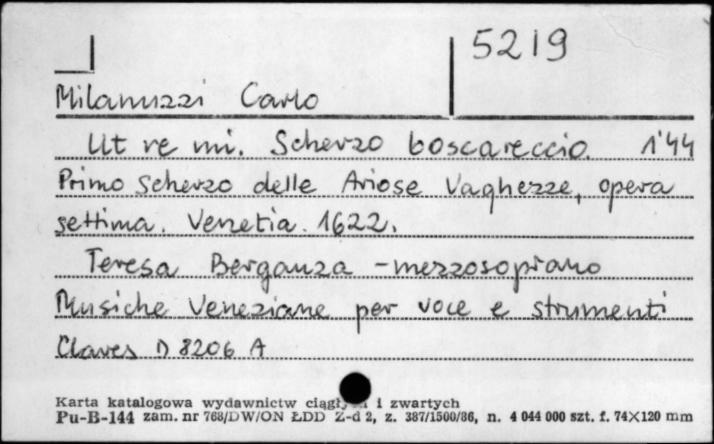 5219
Milanuzzi Carlo
Ut re mi. Scherzo boscareccio. 1'44
Primo Scherzo delle Ariose Vaghezze, opera
settima. Venetia. 1622.
Teresa Berganza - mezzosoprano
Musiche Veneziane per voce e strumenti
Claves D 8206 A
Karta katalogowa wydawnictw i zwartych
Pu-B-144 zam. nr 768/DW/ON ŁDD Z-d 2, z. 387/1500/86, n. 4 044 000 szt. f. 74X120 mm